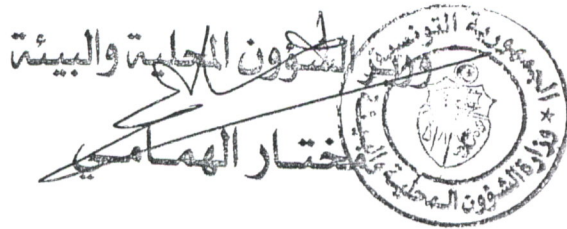 وزير الشؤون المحلية والبيئة
مختار الهمامي
الجمهورية التونسية
* وزارة الشؤون المحلية